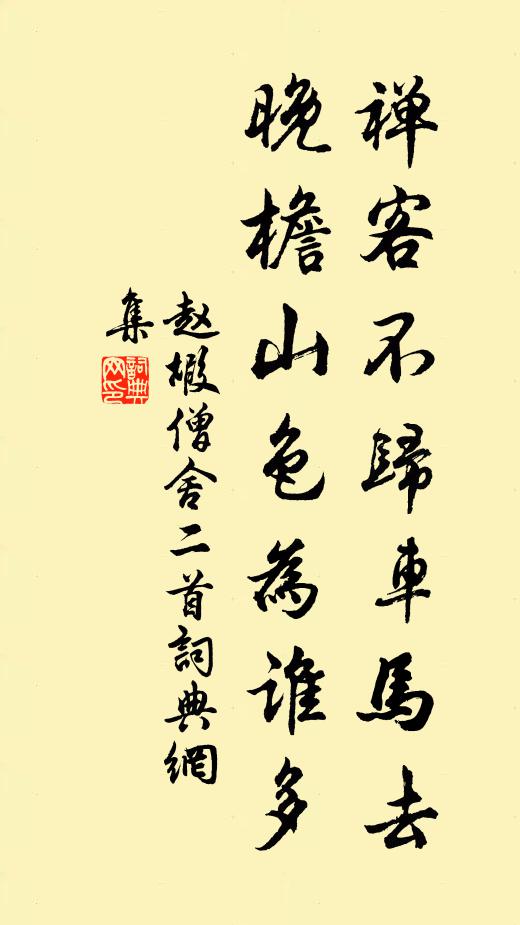 禅客不歸車馬去
晚檐山色為誰多
赵嘏僧舍二首詞典網
集
詞典
网印